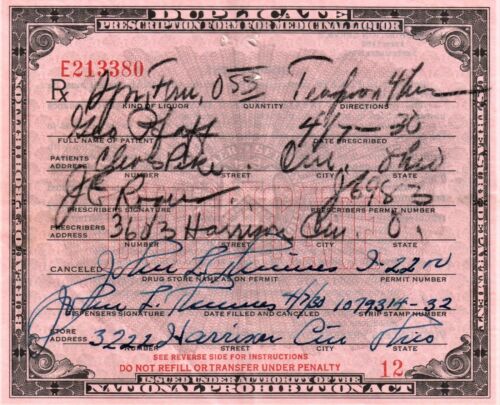 DUPLICATE
PRESCRIPTION FORM FOR MEDICINAL LIQUOR
E213380
Rx Spts, Teaspoon 4
KIND OF LIQUOR QUANTITY DIRECTIONS
Geo Pfaff 4/7-30
FULL NAME OF PATIENT DATE PRESCRIBED
Cleves Pike. Cin. Ohio
PATIENTS ADDRESS NUMBER STREET CITY STATE
J6983
PRESCRIBERS SIGNATURE PERMIT NUMBER
3603 Harrison Cin. O.
PRESCRIBERS ADDRESS NUMBER STREET CITY STATE
CANCELED John
DRUG STORE NAME AS ON PERMIT PERMIT NUMBER
John 4/7/30 1079314-32
DISPENSERS SIGNATURE DATE FILLED AND CANCELED STRIP STAMP NUMBER
3222 Harrison Cin Ohio
STORE ADDRESS NUMBER STREET CITY STATE
SEE REVERSE SIDE FOR INSTRUCTIONS
DO NOT REFILL OR TRANSFER UNDER PENALTY 12
ISSUED UNDER AUTHORITY OF THE
NATIONAL PROHIBITION ACT